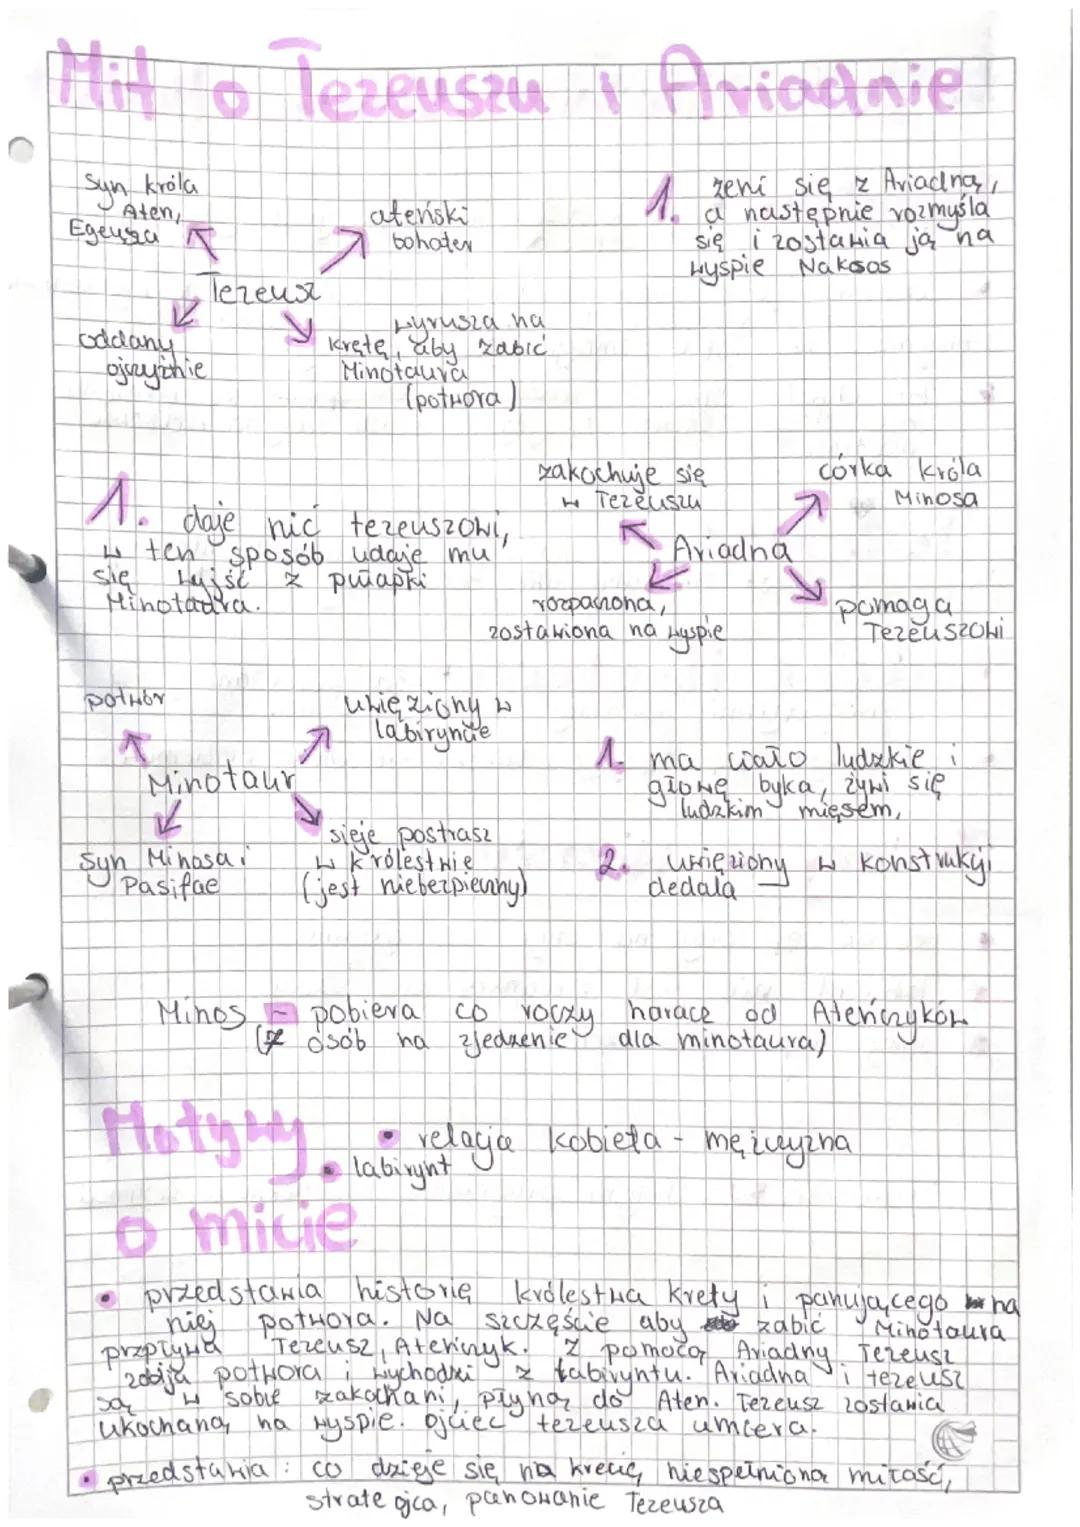 Mit o Tezeuszu i Ariadnie
Syn króla
Aten,
Egeusza
ateński
bohater
Tezeusz
oddany
ojczyźnie
wyrusza na
kretę, aby zabić
Minotaura
(potwora)
1. żeni się z Ariadną,
a następnie rozmyśla
się i zostawia ją na
wyspie Naksos
1. daje nić tezeuszowi,
w ten sposób udaje mu
się wyjść z pułapki
Minotaura.
zakochuje się
w Tezeuszu
córka króla
Minosa
Ariadna
rozpaczona,
zostawiona na wyspie
pomaga
Tezeuszowi
potwór
uwięziony w
labiryncie
Minotaur
syn Minosa i
Pasifae
sieje postrasz
w królestwie
(jest niebezpieczny)
1. ma ciało ludzkie i
głowę byka, żywi się
ludzkim mięsem,
2. uwięziony w konstrukcji
dedala
Minos - pobiera co roczy haracz od Ateńczyków
(7 osób na zjedzenie dla minotaura)
Motywy
• relacja kobieta - mężczyzna
• labirynt
o micie
• przedstawia historię królestwa krety i panującego na
niej potwora. Na szczęście aby zabić Minotaura
przpływa Tezeusz, Ateńczyk. Z pomocą Ariadny Tezeusz
zabija potwora i wychodzi z łabiryntu. Ariadna i tezeusz
są w sobie zakochani, płyną do Aten. Tezeusz zostawia
ukochaną na wyspie. Ojciec tezeusza umiera.
• przedstawia: co dzieje się na krecie, niespełniona miłość,
strate ojca, panowanie Tezeusza